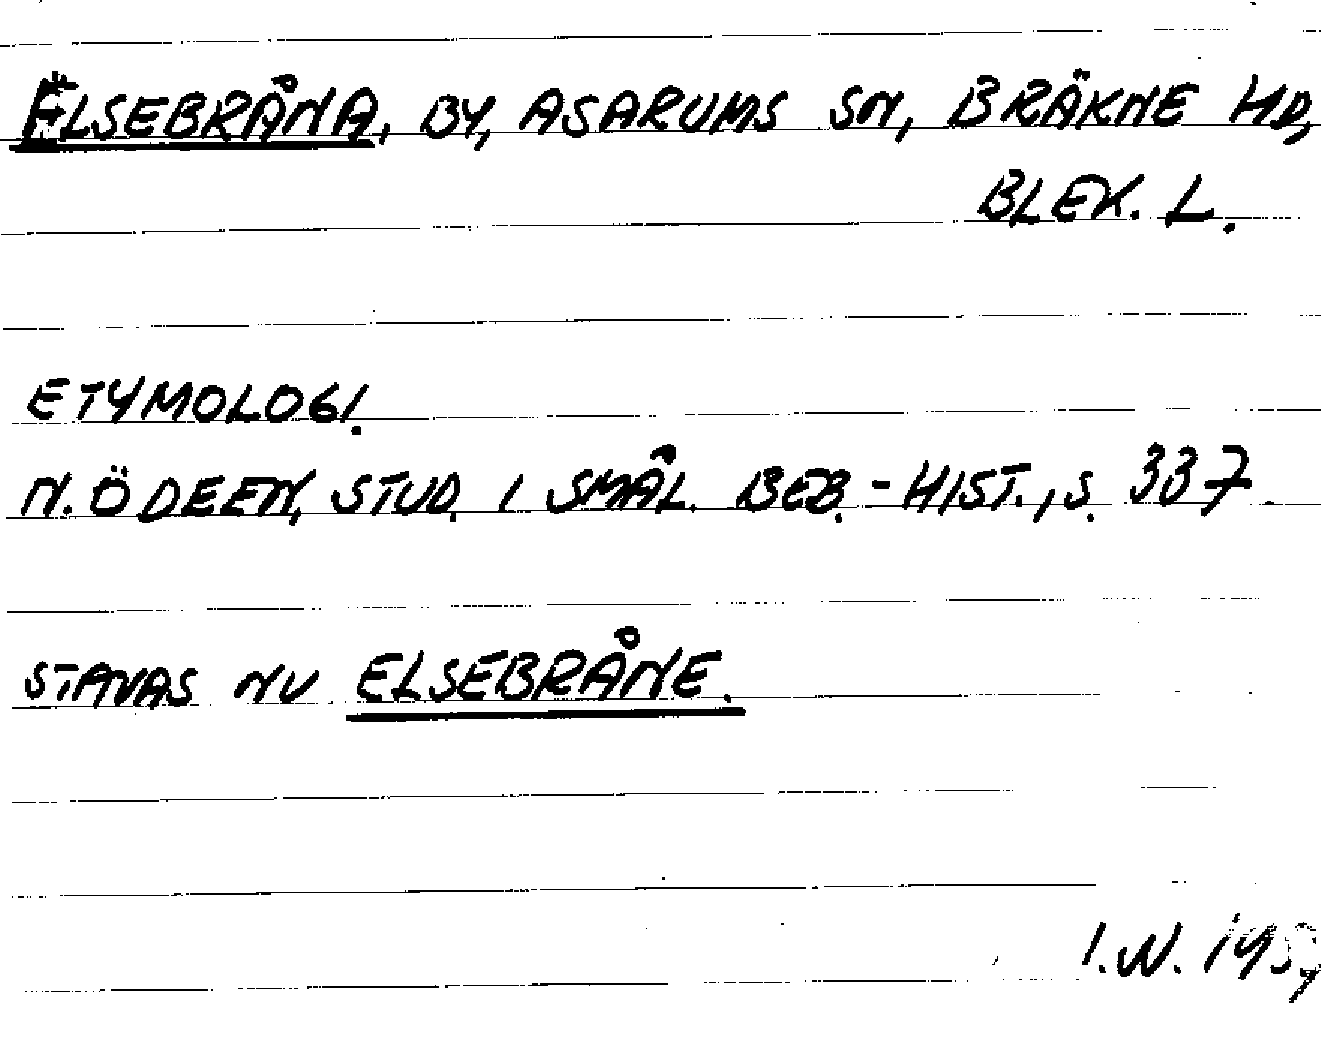 ELSEBRÅNA, BY, ASARUMS SN, BRÄKNE HD,
BLEK. L.
ETYMOLOGI.
N. ÖDEEN, STUD. I SMÅL. BEB.-HIST., S. 337.
STAVAS NU ELSEBRÅNE.
I.N.